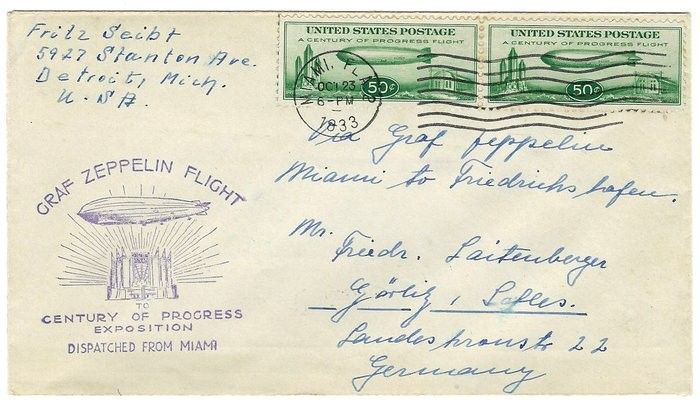 Fritz Seibt
5927 Stanton Ave.
Detroit, Mich.
U.SA.
UNITED STATES POSTAGE
A CENTURY OF PROGRESS FLIGHT
50¢
UNITED STATES POSTAGE
A CENTURY OF PROGRESS FLIGHT
50¢
MIAMI, FLA.
OCT 23
6-PM
1933
Via Graf Zeppelin
Miami to Friedrichshafen.
Mr.
Friedr. Laitenberger
Görlitz, Schles.
Landeskronstr 22
Germany
GRAF ZEPPELIN FLIGHT
TO
CENTURY OF PROGRESS
EXPOSITION
DISPATCHED FROM MIAMI